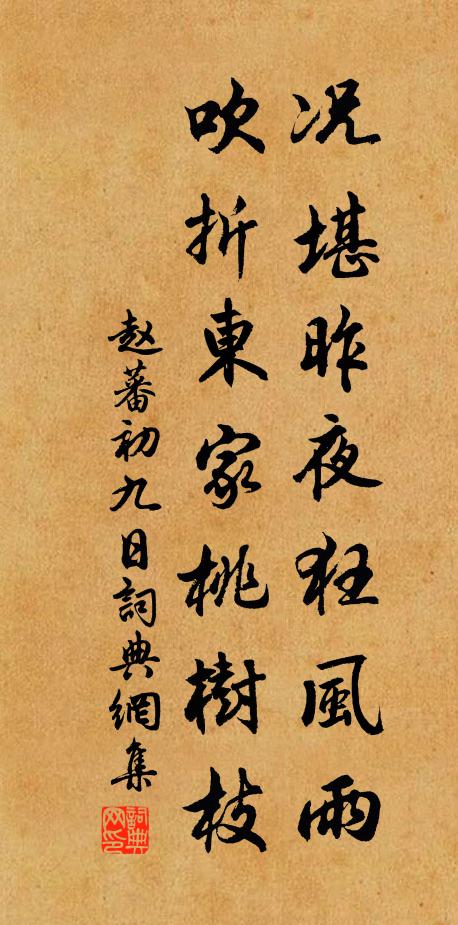 况堪昨夜狂風雨
吹折東家桃樹枝
赵蕃初九日詞典網集
詞典网印